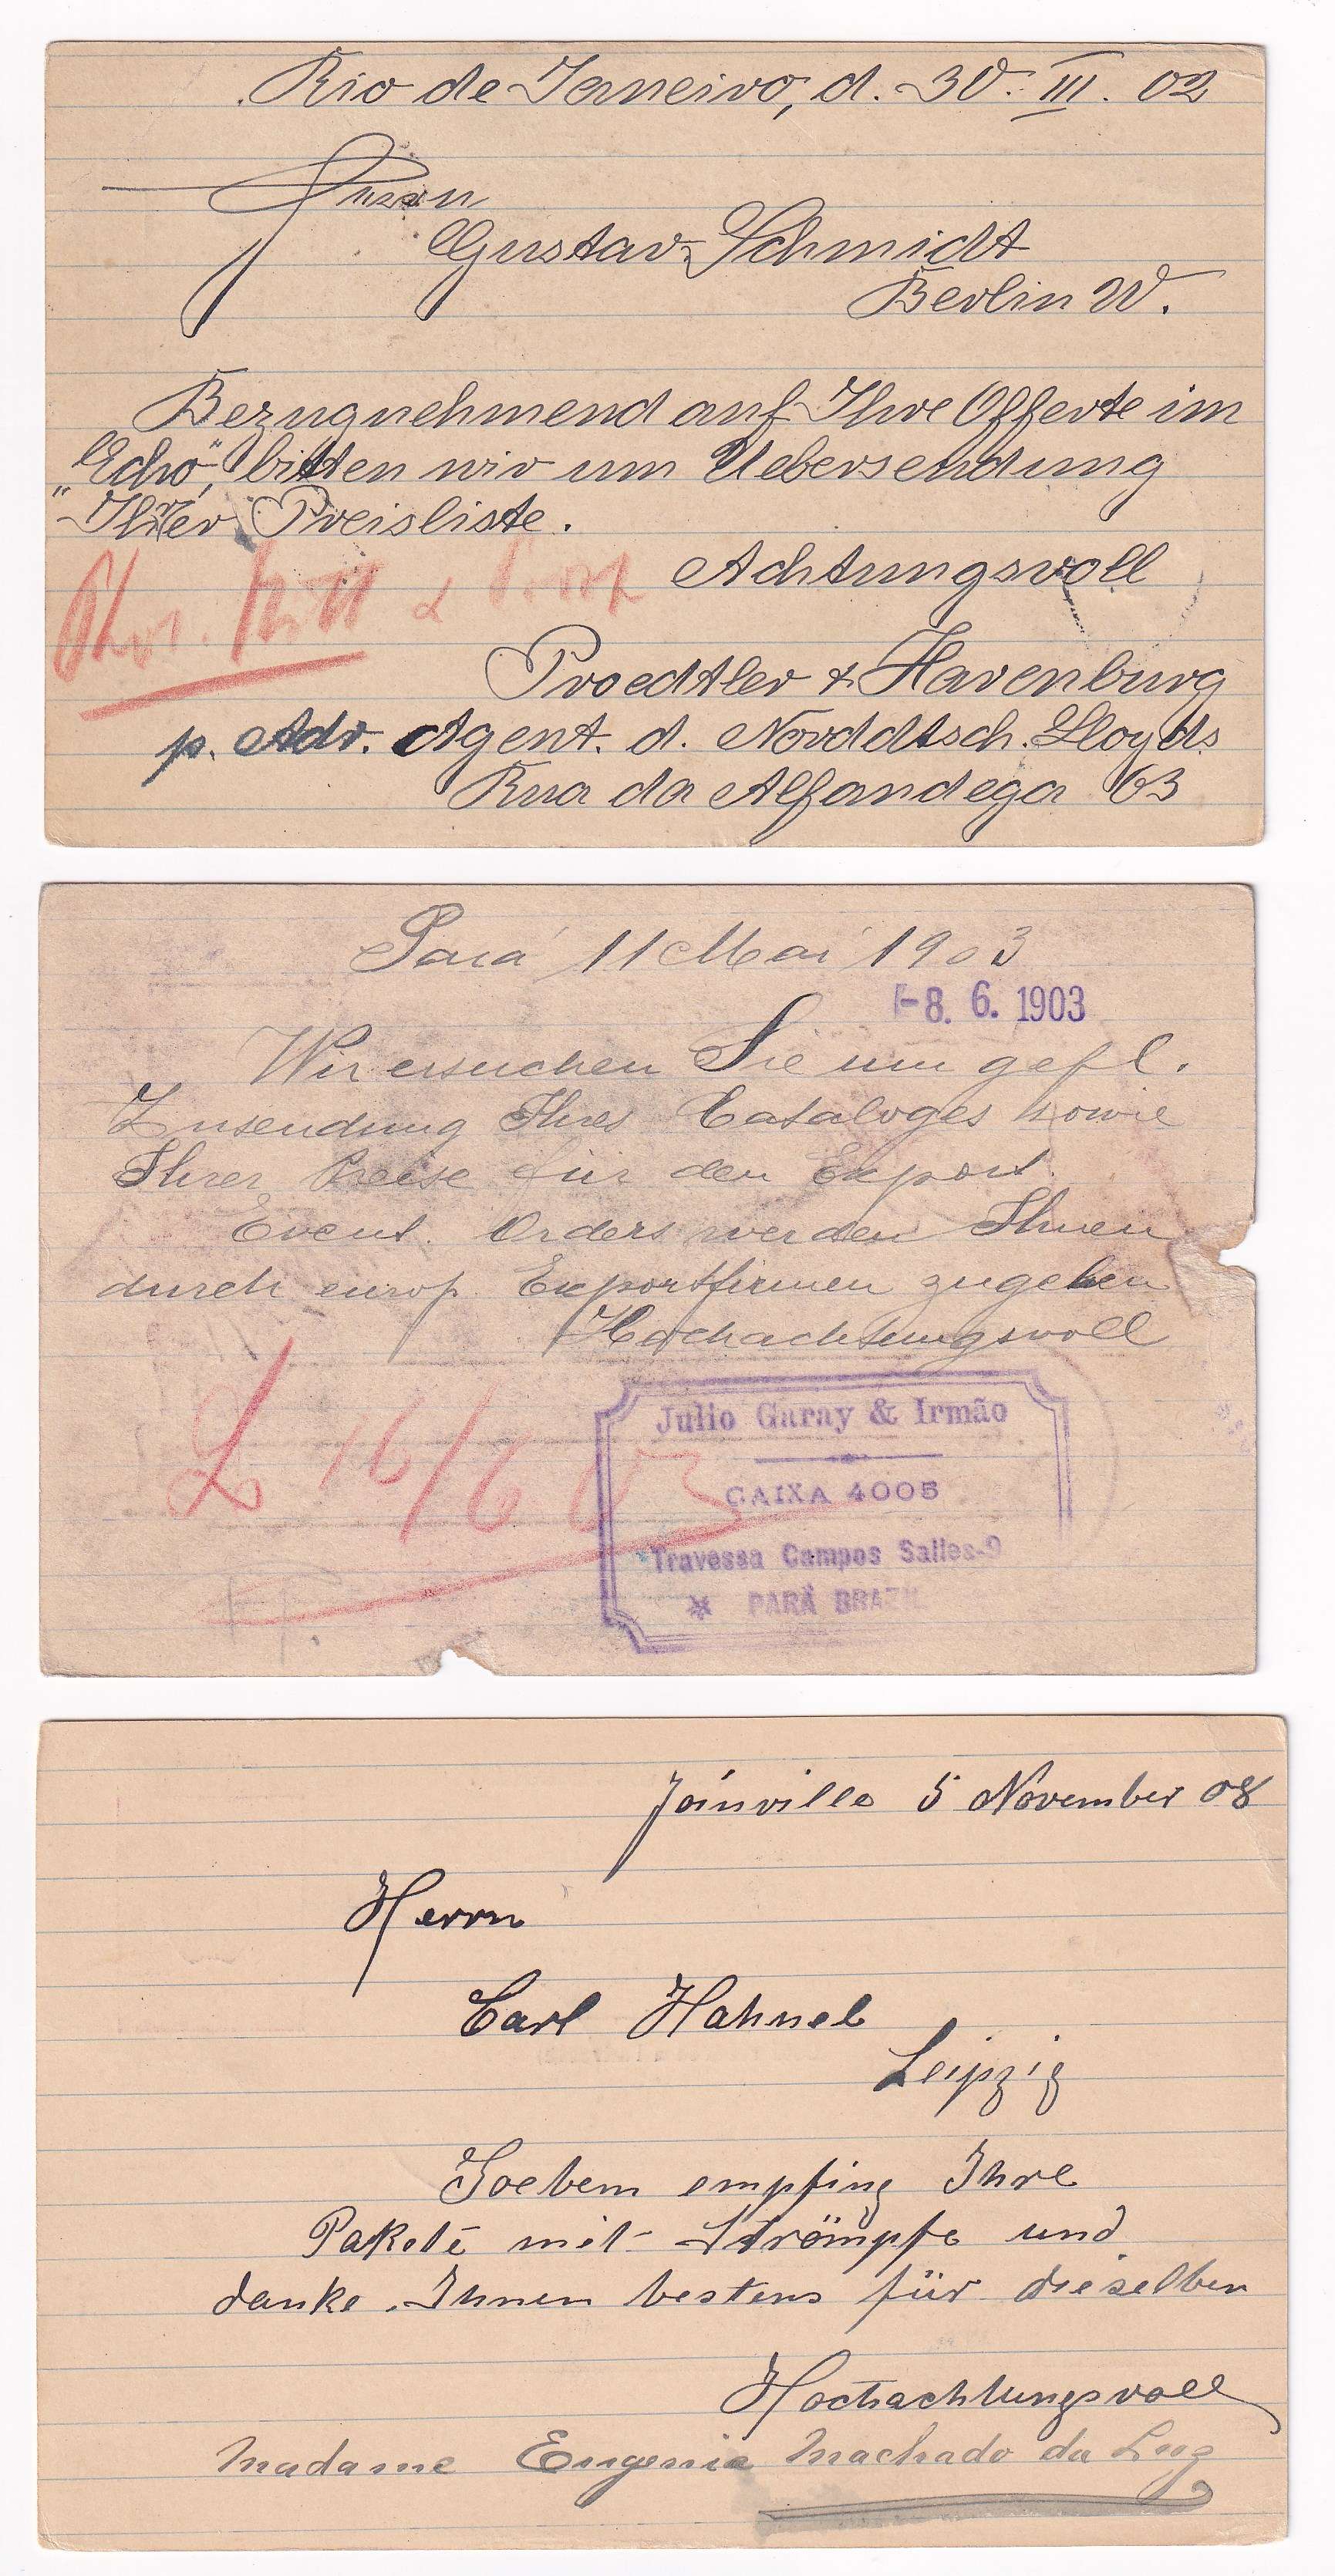 Rio de Janeiro, d. 30. III. 02
Herrn
Gustav Schmidt
Berlin W.
Bezugnehmend auf Ihre Offerte im
„Echo“, bitten wir um Uebersendung
Ihrer Preisliste.
Achtungsvoll
Proedtler & Havenburg
p. Adr. Agent. d. Norddtsch. Lloyds
Rua da Alfandega 63
Pará 11 Mai 1903
-8. 6. 1903
Wir ersuchen Sie um gefl.
Zusendung Ihres Cataloges sowie
Ihrer Preise für den Export.
Event. Orders werden Ihnen
durch europ. Exportfirmen zugehen
Hochachtungsvoll
L 16/6 03
Julio Garay & Irmão
CAIXA 4005
Travessa Campos Salles-9
PARÁ BRAZIL
Joinville 5 November 08
Herrn
Carl Hahnel
Leipzig
Soeben empfing Ihre
Pakete mit Strömpfe und
danke Ihnen bestens für dieselben
Hochachtungsvoll
Madame Eugenia Machado da Luz